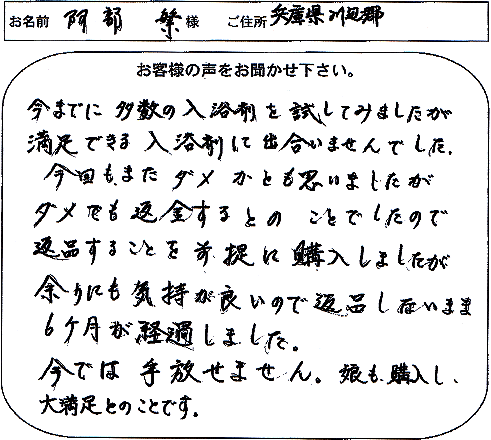 お名前 阿部 繁 様 ご住所 兵庫県川辺郡
お客様の声をお聞かせ下さい。
今までに 多数の入浴剤を試してみましたが
満足できる入浴剤に出合いませんでした。
今回も、また ダメ かとも思いましたが
ダメでも返金するとの ことでしたので
返品することを前提に購入しましたが
余りにも気持が良いので返品しないまま
6ケ月が経過しました。
今では手放せません。娘も購入し、
大満足とのことです。